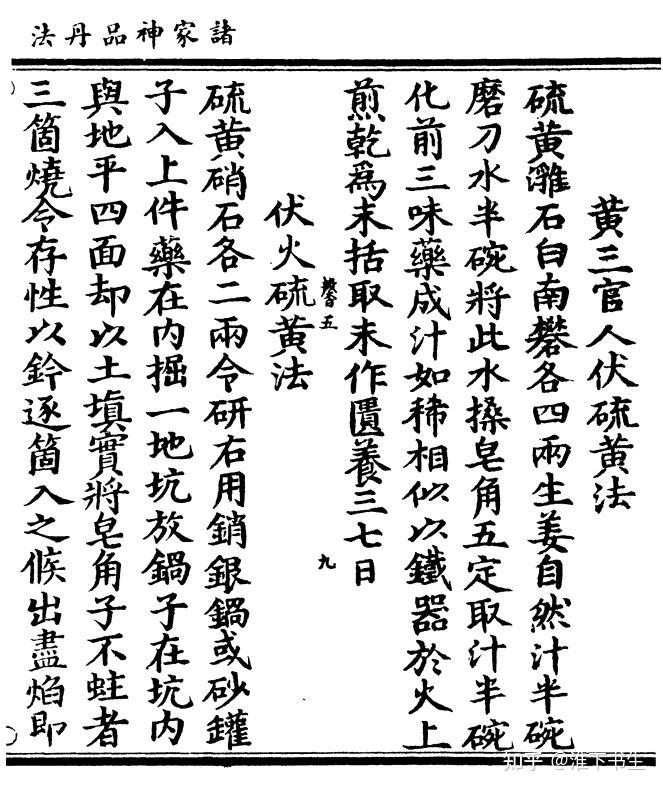 諸家神品丹法
黃三官人伏硫黃法
硫黃濰石白南礬各四兩生姜自然汁半碗
磨刀水半碗將此水搡皂角五定取汁半碗
化前三味藥成汁如稀相似以鐵器於火上
煎乾爲末括取末作匱養三七日
五
九
伏火硫黃法
硫黃硝石各二兩令研右用銷銀鍋或砂罐
子入上件藥在內掘一地坑放鍋子在坑內
與地平四面却以土填實將皂角子不蛀者
三箇燒令存性以鈐逐箇入之候出盡焰即
知乎 @淮下书生